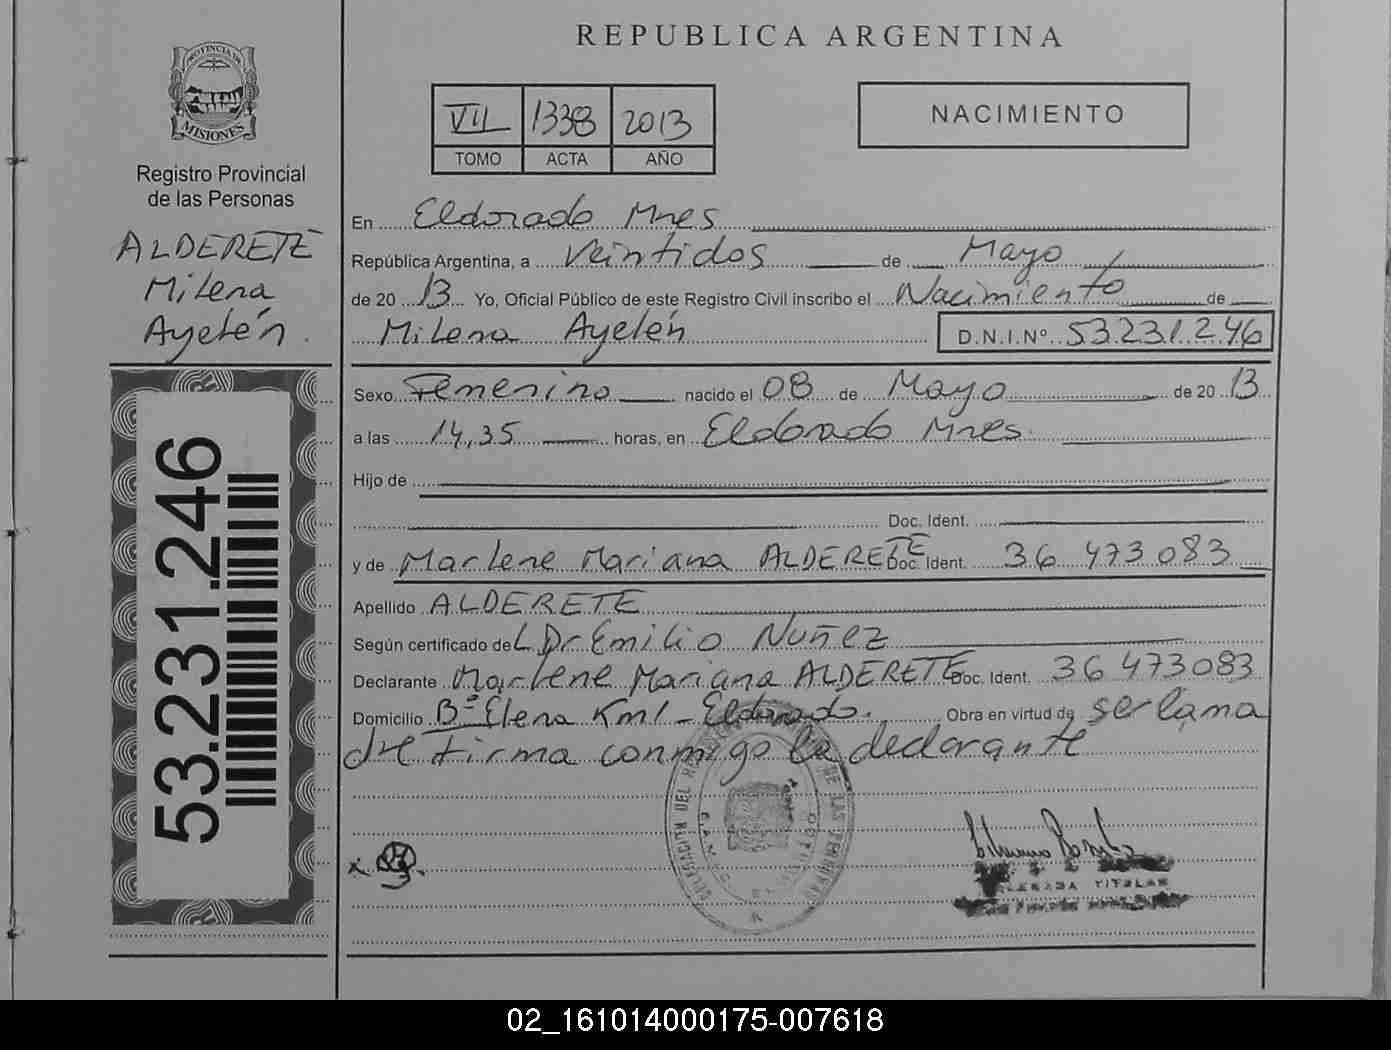 REPUBLICA ARGENTINA
PROVINCIA DE
MISIONES
Registro Provincial
de las Personas
ALDERETE
Milena
Ayelén.
53.231.246
VII 1338 2013
TOMO ACTA AÑO
NACIMIENTO
En Eldorado Mnes
República Argentina, a Veintidos de Mayo
de 20 13 Yo, Oficial Público de este Registro Civil inscribo el Nacimiento de
Milena Ayelén D.N.I.Nº 53.231.246
Sexo Femenino nacido el 08 de Mayo de 20 13
a las 14,35 horas, en Eldorado Mnes.
Hijo de
Doc. Ident.
y de Marlene Mariana ALDERETE Doc. Ident. 36 473 083
Apellido ALDERETE
Según certificado del Dr Emilio Nuñez
Declarante Marlene Mariana ALDERETE Doc. Ident. 36 473083
Domicilio Bº Elena Km1 - Eldorado. Obra en virtud de ser la ma
dre firma conmigo la declarante
DELEGACION DEL DE LAS
TITULAR
02_161014000175-007618